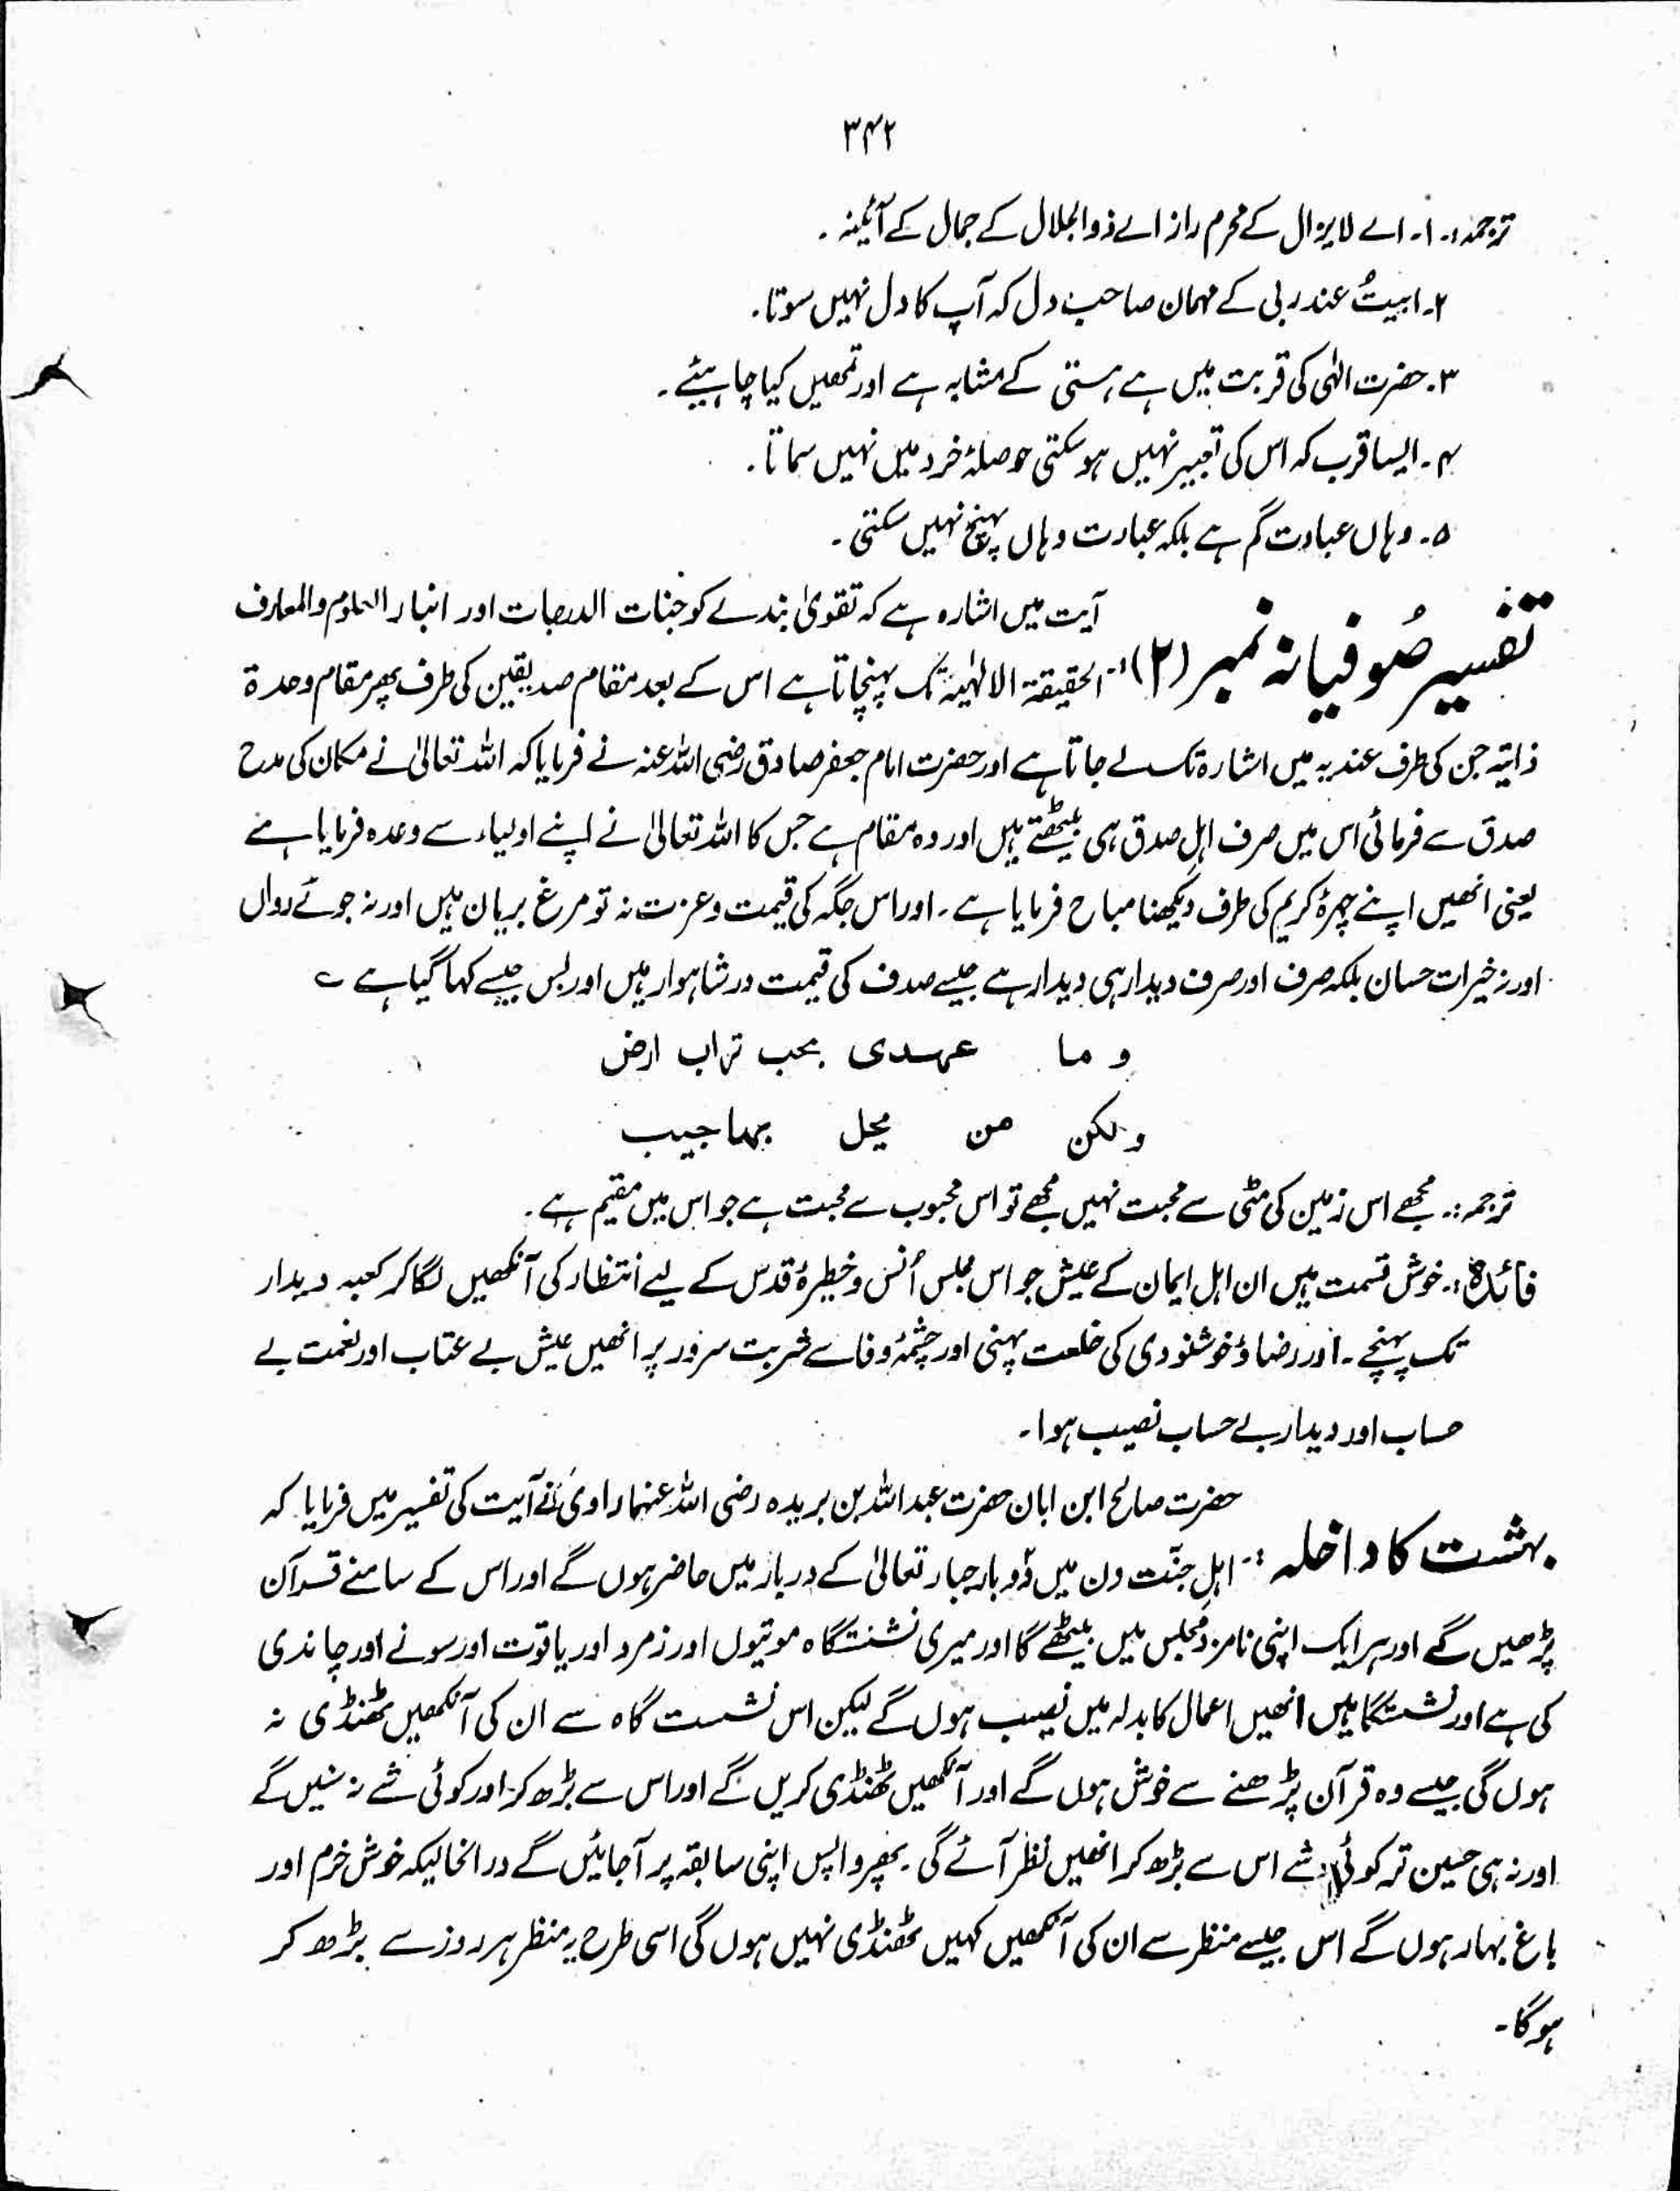 ۳۴۲
ترجمہ:۔ ۱۔ اے لایزال کے محرم راز اے ذوالجلال کے جمال کے آئینہ۔
۲۔ ابیتُ عند ربی کے مہمان صاحب دل کہ آپ کا دل نہیں سوتا۔
۳۔ حضرت الٰہی کی قربت میں ہے ہستی کے مشابہ ہے اور تمھیں کیا چاہیئے۔
۴۔ ایسا قرب کہ اس کی تعبیر نہیں ہو سکتی حوصلۂ خرد میں نہیں سماتا۔
۵۔ وہاں عبادت گم ہے بلکہ عبارت وہاں پہنچ نہیں سکتی۔
تفسیر صُوفیانہ نمبر (۲):۔ آیت میں اشارہ ہے کہ تقویٰ بندے کو جنات الدرجات اور انہار العلوم والمعارف
الحقیقۃ الالٰہیۃ تک پہنچاتا ہے اس کے بعد مقام صدیقین کی طرف پھر مقام وحدۃ
ذاتیہ جن کی طرف عندیہ میں اشارہ تک لے جاتا ہے اور حضرت امام جعفر صادق رضی اللہ عنہ نے فرمایا کہ اللہ تعالیٰ نے مکان کی مدح
صدق سے فرمائی اس میں صرف اہلِ صدق ہی بیٹھتے ہیں اور وہ مقام ہے جس کا اللہ تعالیٰ نے اپنے اولیاء سے وعدہ فرمایا ہے
یعنی انھیں اپنے چہرۂ کریم کی طرف دیکھنا مباح فرمایا ہے۔ اور اس جگہ کی قیمت و عزت نہ تو مرغ بریان ہیں اور نہ جوئے رواں
اور نہ خیرات حسان بلکہ صرف اور صرف دیدار ہی دیدار ہے جیسے صدف کی قیمت در شاہوار ہیں اور بس جیسے کہا گیا ہے ؎
و ما عہدی بحب تراب ارض
ولکن من یحل بہا حبیب
ترجمہ:۔ مجھے اس زمین کی مٹی سے محبت نہیں مجھے تو اس محبوب سے محبت ہے جو اس میں مقیم ہے۔
فائدہ:۔ خوش قسمت ہیں ان اہل ایمان کے عیش جو اس مجلس اُنس و خطیرۂ قدس کے لیے انتظار کی آنکھیں لگا کر کعبہ دیدار
تک پہنچے۔ اور رضاؤ خوشنودی کی خلعت پہنی اور چشمۂ وفا سے شربت سرور پر انھیں عیش بے عتاب اور نعمت بے
حساب اور دیدار بے حساب نصیب ہوا۔
بہشت کا داخلہ:۔ حضرت صالح ابن ابان حضرت عبداللہ بن بریدہ رضی اللہ عنہما راوی نے آیت کی تفسیر میں فرمایا کہ
اہلِ جنّت دن میں دو بار جبار تعالیٰ کے دربار میں حاضر ہوں گے اور اس کے سامنے قرآن
پڑھیں گے اور ہر ایک اپنی نامزد مجلس میں بیٹھے گا اور میری نشتگاہ موتیوں اور زمرد اور یاقوت اور سونے اور چاندی
کی ہے اور نشستگاہیں انھیں اعمال کا بدلہ میں نصیب ہوں گے لیکن اس نشست گاہ سے ان کی آنکھیں ٹھنڈی نہ
ہوں گی جیسے وہ قرآن پڑھنے سے خوش ہوں گے اور آنکھیں ٹھنڈی کریں گے اور اس سے بڑھ کر اور کوئی شے نہ سنیں گے
اور نہ ہی حسین تر کوئی شے اس سے بڑھ کر انھیں نظر آئے گی۔ پھر واپس اپنی سابقہ پر آجائیں گے درانحالیکہ خوش خرم اور
باغ بہار ہوں گے اس جیسے منظر سے ان کی آنکھیں کہیں ٹھنڈی نہیں ہوں گی اسی طرح یہ منظر ہر روز سے بڑھ کر
ہوگا۔